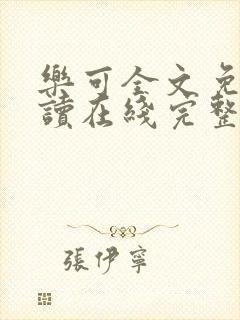 樂可全文免
讀在綫完整
張伊寧